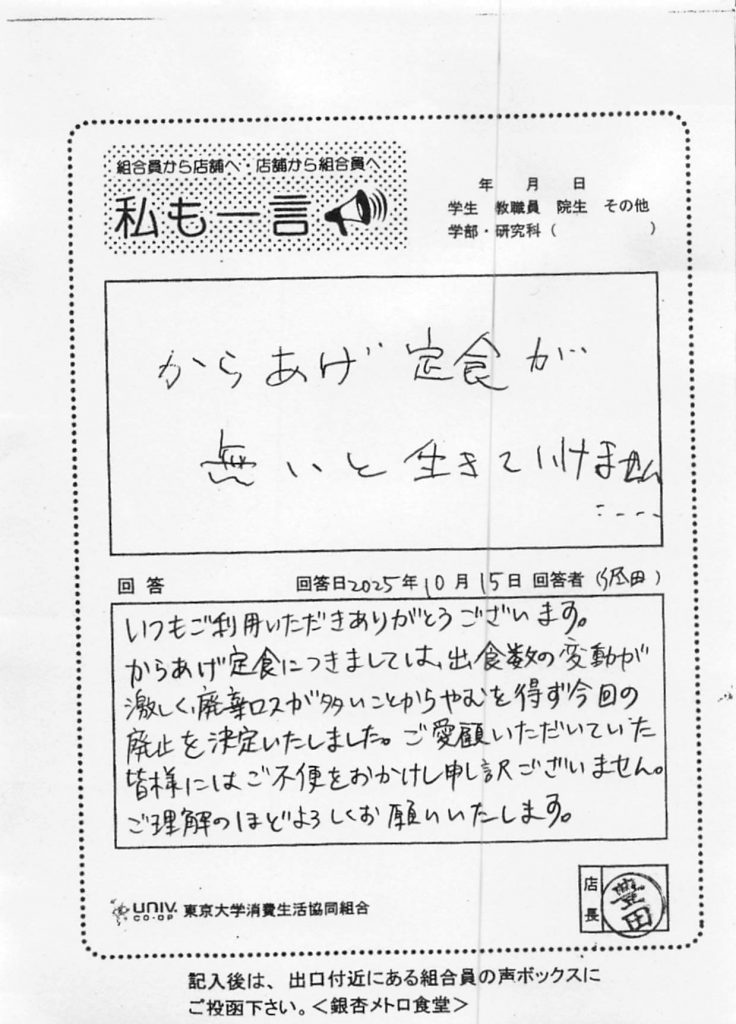 組合員から店舗へ・店舗から組合員へ
私も一言
年 月 日
学生 教職員 院生 その他
学部・研究科（ ）
からあげ定食が
無いと生きていけません
‥‥
回答 回答日2025年10月15日 回答者（ 田）
いつもご利用いただきありがとうございます。
からあげ定食につきましては、出食数の変動が
激しく、廃棄ロスが多いことからやむを得ず今回の
廃止を決定いたしました。ご愛顧いただいていた
皆様にはご不便をおかけし申し訳ございません。
ご理解のほどよろしくお願いいたします。
店長 豊田
UNIV. CO-OP 東京大学消費生活協同組合
記入後は、出口付近にある組合員の声ボックスに
ご投函下さい。＜銀杏メトロ食堂＞